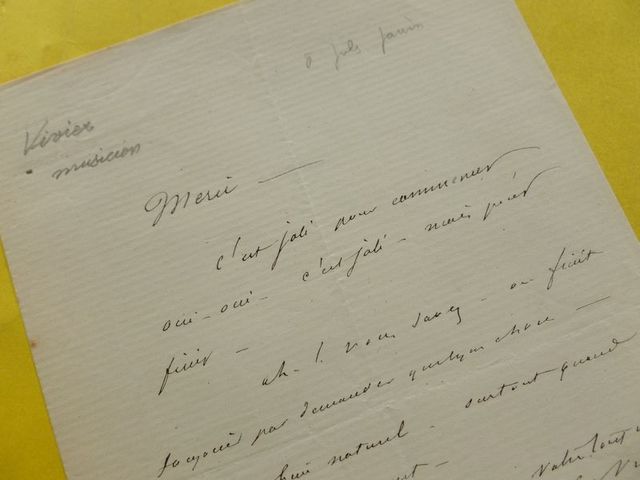 à Jules Janin
Vivier
musicien
Merci —
c'est joli pour commencer
oui – oui – c'est joli – mais pour
finir –
ah – ! vous savez – on finit
toujours par demander quelque chose —
naturel – surtout quand